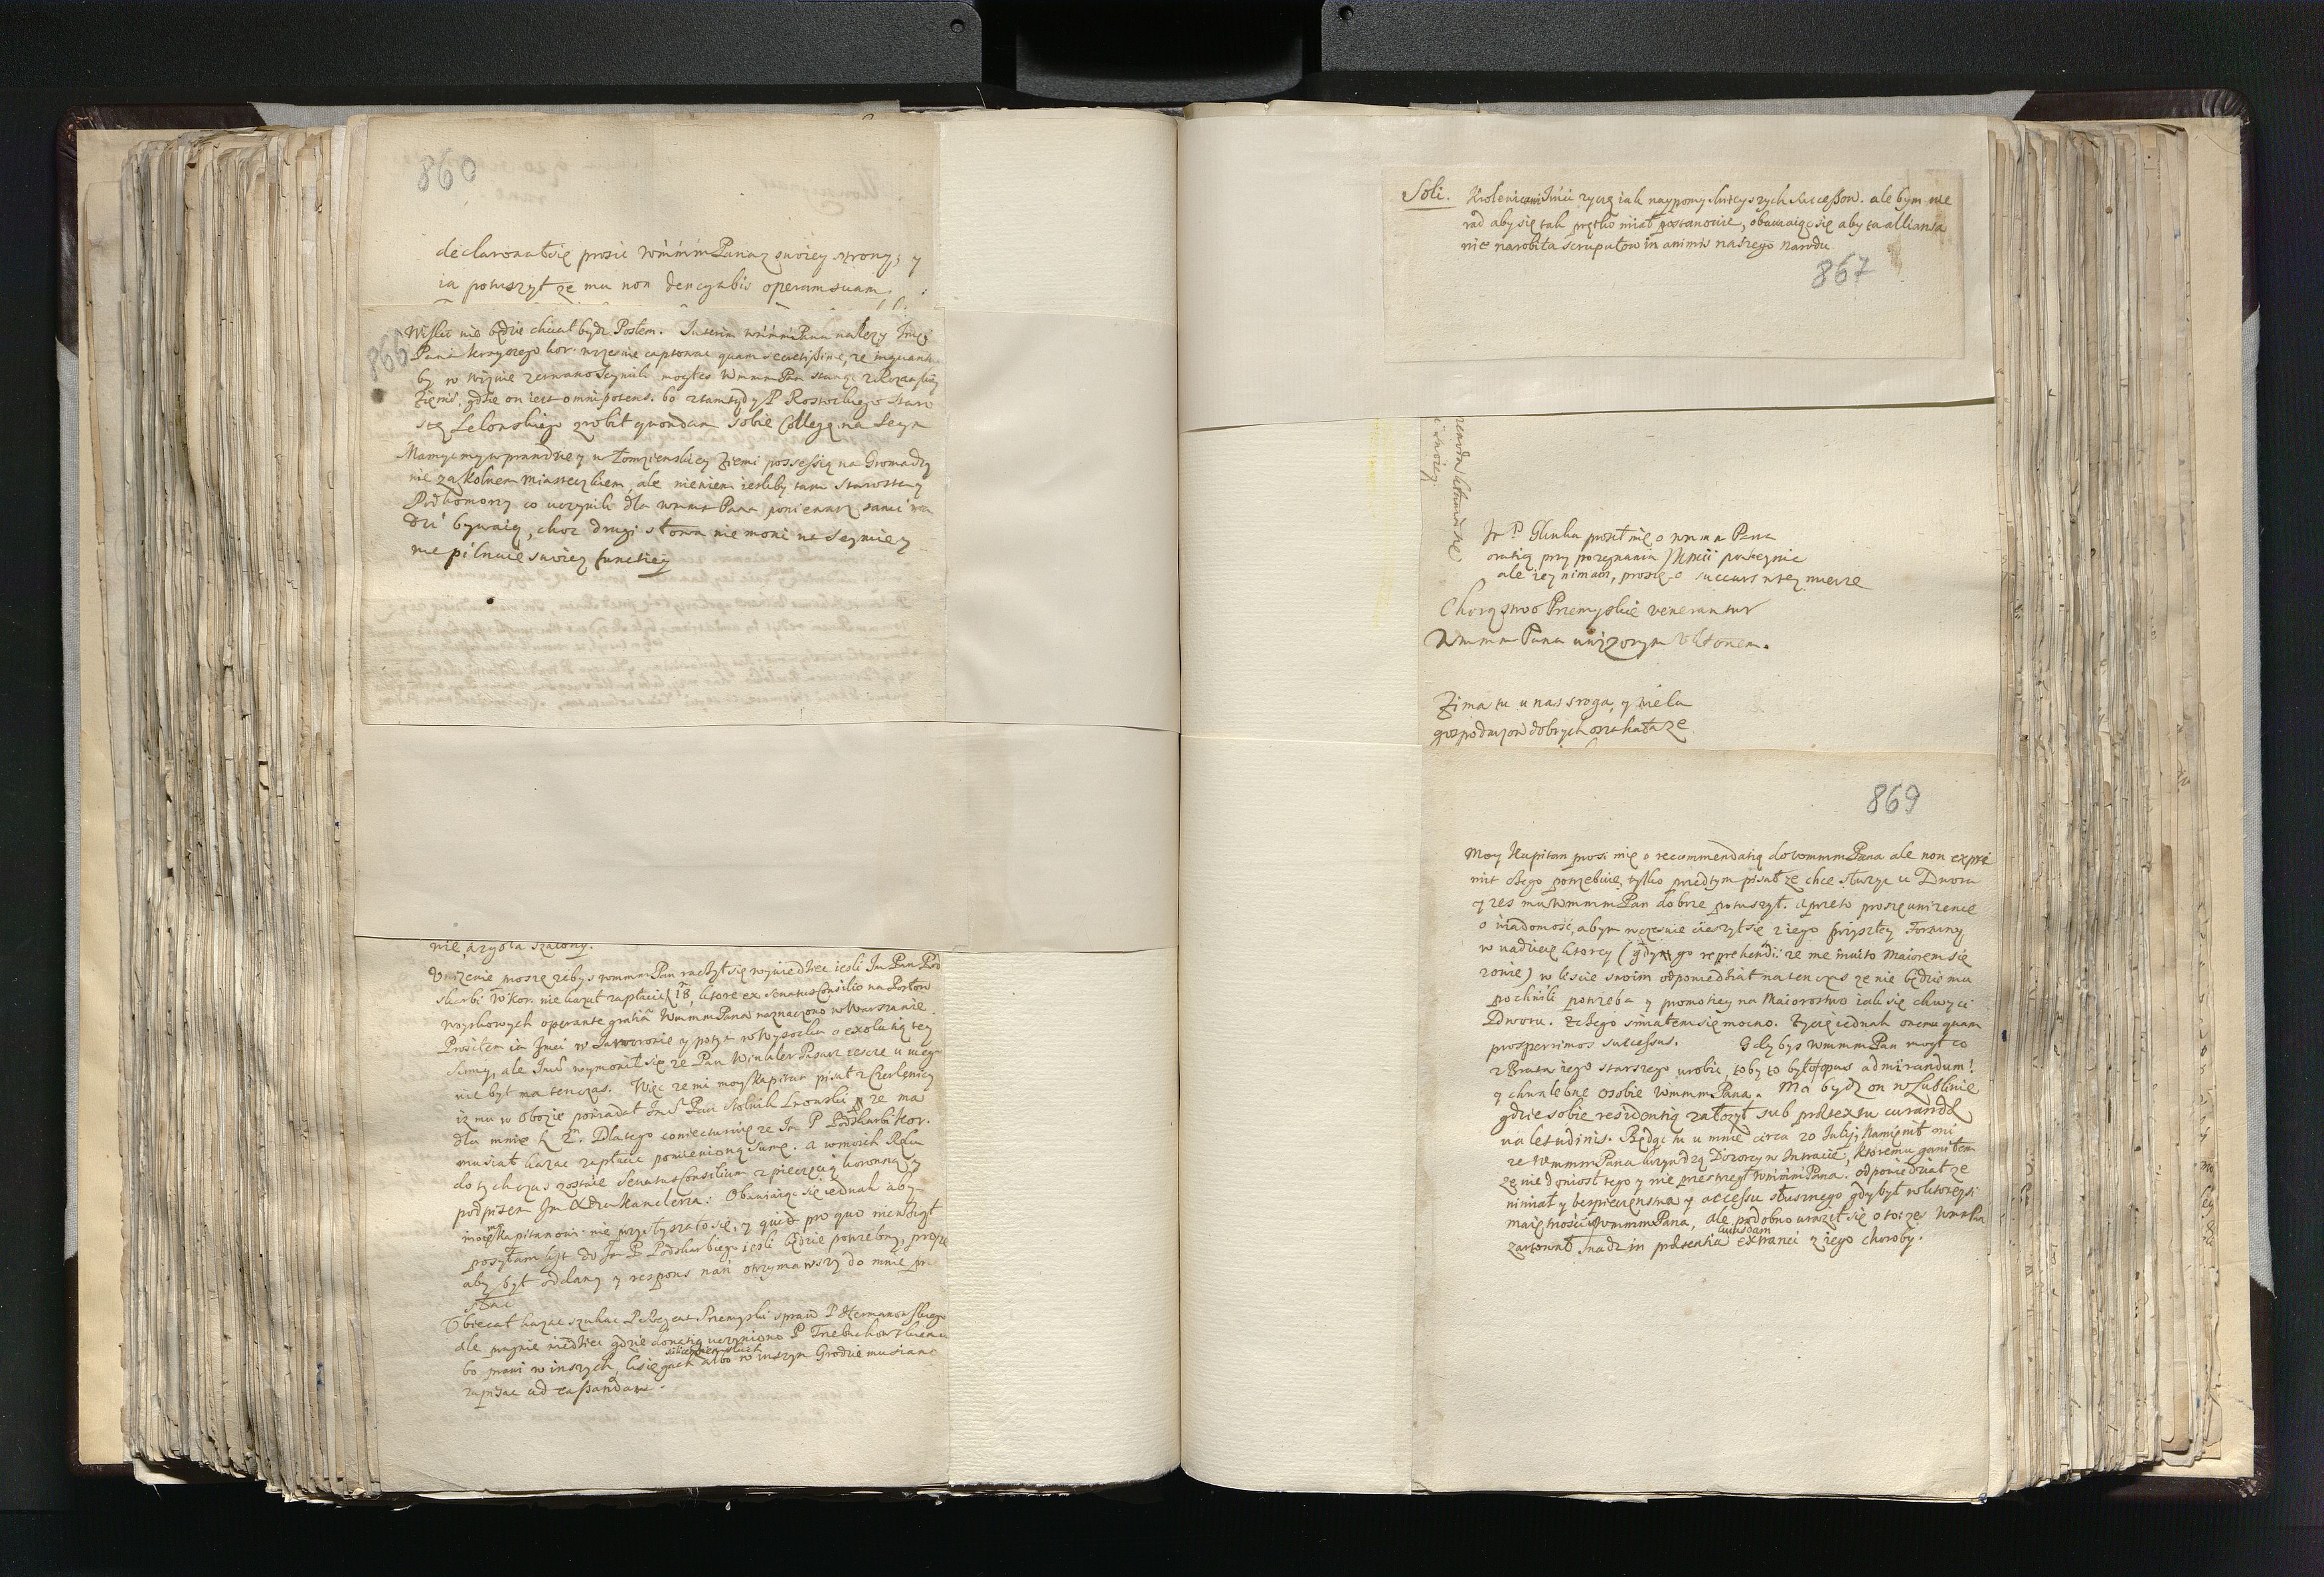 860
declarował się prosić WMMM Pana z swoiey strony, y
ia potuszył ze mu non denegabis operam suam.
866
Wiślic nie będzie chciał bydz Posłem. Interim WMMM Panu należy Imci
Pana hor. wczesnie captować quam secretissime, ze inquantum
by w zerwano Seymik mogłes WMMM Pan stanąc z Rozanskiey
Ziemi, gdzie on iest omnipotens. bo ztamtąd y P Rostockiego Staro
stę Zelonskiego zrobił quondam sobie Collegę na Seym
Mamyc my wprawdzie y w Łomzienskiey Ziemi possessią na Gromadzy
nie za Kolnem Miasteczkiem, ale niewiem iesliby tam Starosta y
Podkomorzy co uczynili dla WMMM Pana poniewasz sami ra
dzi bywaią, choc drugi słowa nie mowi na Seymie y
nie pilnuie swoiey functiey
nie, azgoła szalony.
Unizenie proszę zebys WMMM Pan raczył się wywiedziec iesli Im Pan Pod
skarbi W Kor. nie kazał zapłacic 18, ktore ex Senatus Consilio na Posłow
woyskowych operante gratia WMMM Pana naznaczono w Warszawie.
Prosiłem ia Imci w Jaworowie y potym w Wysocku o exolutią tey
Summy, ale Imsc wymowił się ze Pan Winkler Pisarz iescze u niego
nie był na tenczas. Więc ze mi moy Kapitan pisał z Czerlenicy
iz mu w Obozie powiadał Ims Pan Stolnik Lwowski ze ma
dla mnie 2. Dlatego coniecturuię ze Im P Podskarbi Kor.
musiał kazac zapłacic pomienioną Sumę. a w moich Ręku
dotychczas zostaie Senatus Consilium z pieczęcią koronną y
podpisem Im Xdza Kanclerza: Obawiaiąc się iednak aby
moiemu Kapitanowi nie przysłyszało się, y quid pro quo niewziął
posyłam list do Im P Podskarbiego iesli będzie potrzebny, proszę
aby był oddany y respons nan otrzymawszy do mnie prze
słac
Obiecał kazac szukac Podczas Przemyski spraw P Hermanowskiego
ale pragnie wiedziec gdzie donatią uczyniono P Trebuchowskiemu
bo mowi w inszych księgach albo w inszym Grodzie musiano
zapisac ad cassandam.
Soli. Krolewicowi Imci zyczę iak naypomyslnieyszych Successow. ale bym nie
rad aby się tak prętko miał postanowic, obawiaiąc się aby ta allianza
nie narobiła scrupułow in animis naszego narodu
867
i swoiey
Im P Glinka prosił mię o WMMM Pana
oratią przy pozegnaniu
ale iey nimam, proszę o succurs w tey mierze
Chorąstwo Przemyskie venerantur
WMMM Pana unizonym Ukłonem.
Zima tu u nas sroga, y wielu
gospodarzow dobrych oszukała ze
869
Moy Kapitan prosi mię o recommendatią do WMMM Pana ale non expri
mit czego potrzebuie, tylko przedtym pisał ze chce słuzyc u Dworu
y zes mu WMMM Pan dobrze potuszył. A przeto proszę unizenie
o wiadomosć, abym wczesnie cieszył się z iego przyszłey Fortuny
w nadzieię ktorey (gdym go reprehendi: ze me invito Maiorem się
zowie) w lescie swoim odpowiedział na ten czas ze nie będzie mu
po chwili potrzeba y promotiey na Maiorostwo iak się chwyci
Dworu. z czego smiałem się mocno. Zyczę iednak onemu quam
prosperrimos successus. Gdybys WMMM Pan mogł co
z Brata iego starszego urobic, toby to było opus admirandum!
y chwalebne osobie WMMM Pana. Ma bydz on w Lublinie
gdzie sobie residentią załozył sub prætextu curandæ
valetudinis. Będąc tu u mnie circa 20 Julij, namienił mi
ze WMMM Pana krzywdzą Dozorcy w Intracie, ktoremu ganiłem
ze nie doniosł tego y nie przestrzegł WMMM Pana. odpowiedział ze
nimiał y bespieczenstwa y accessu słusznego gdy był w ktoreysi
maiętnosci WMMM Pana, ale podobno uraził się o to izes WMM Pan
cuiusdam
zartował snadz in præsentia extranei z iego choroby.